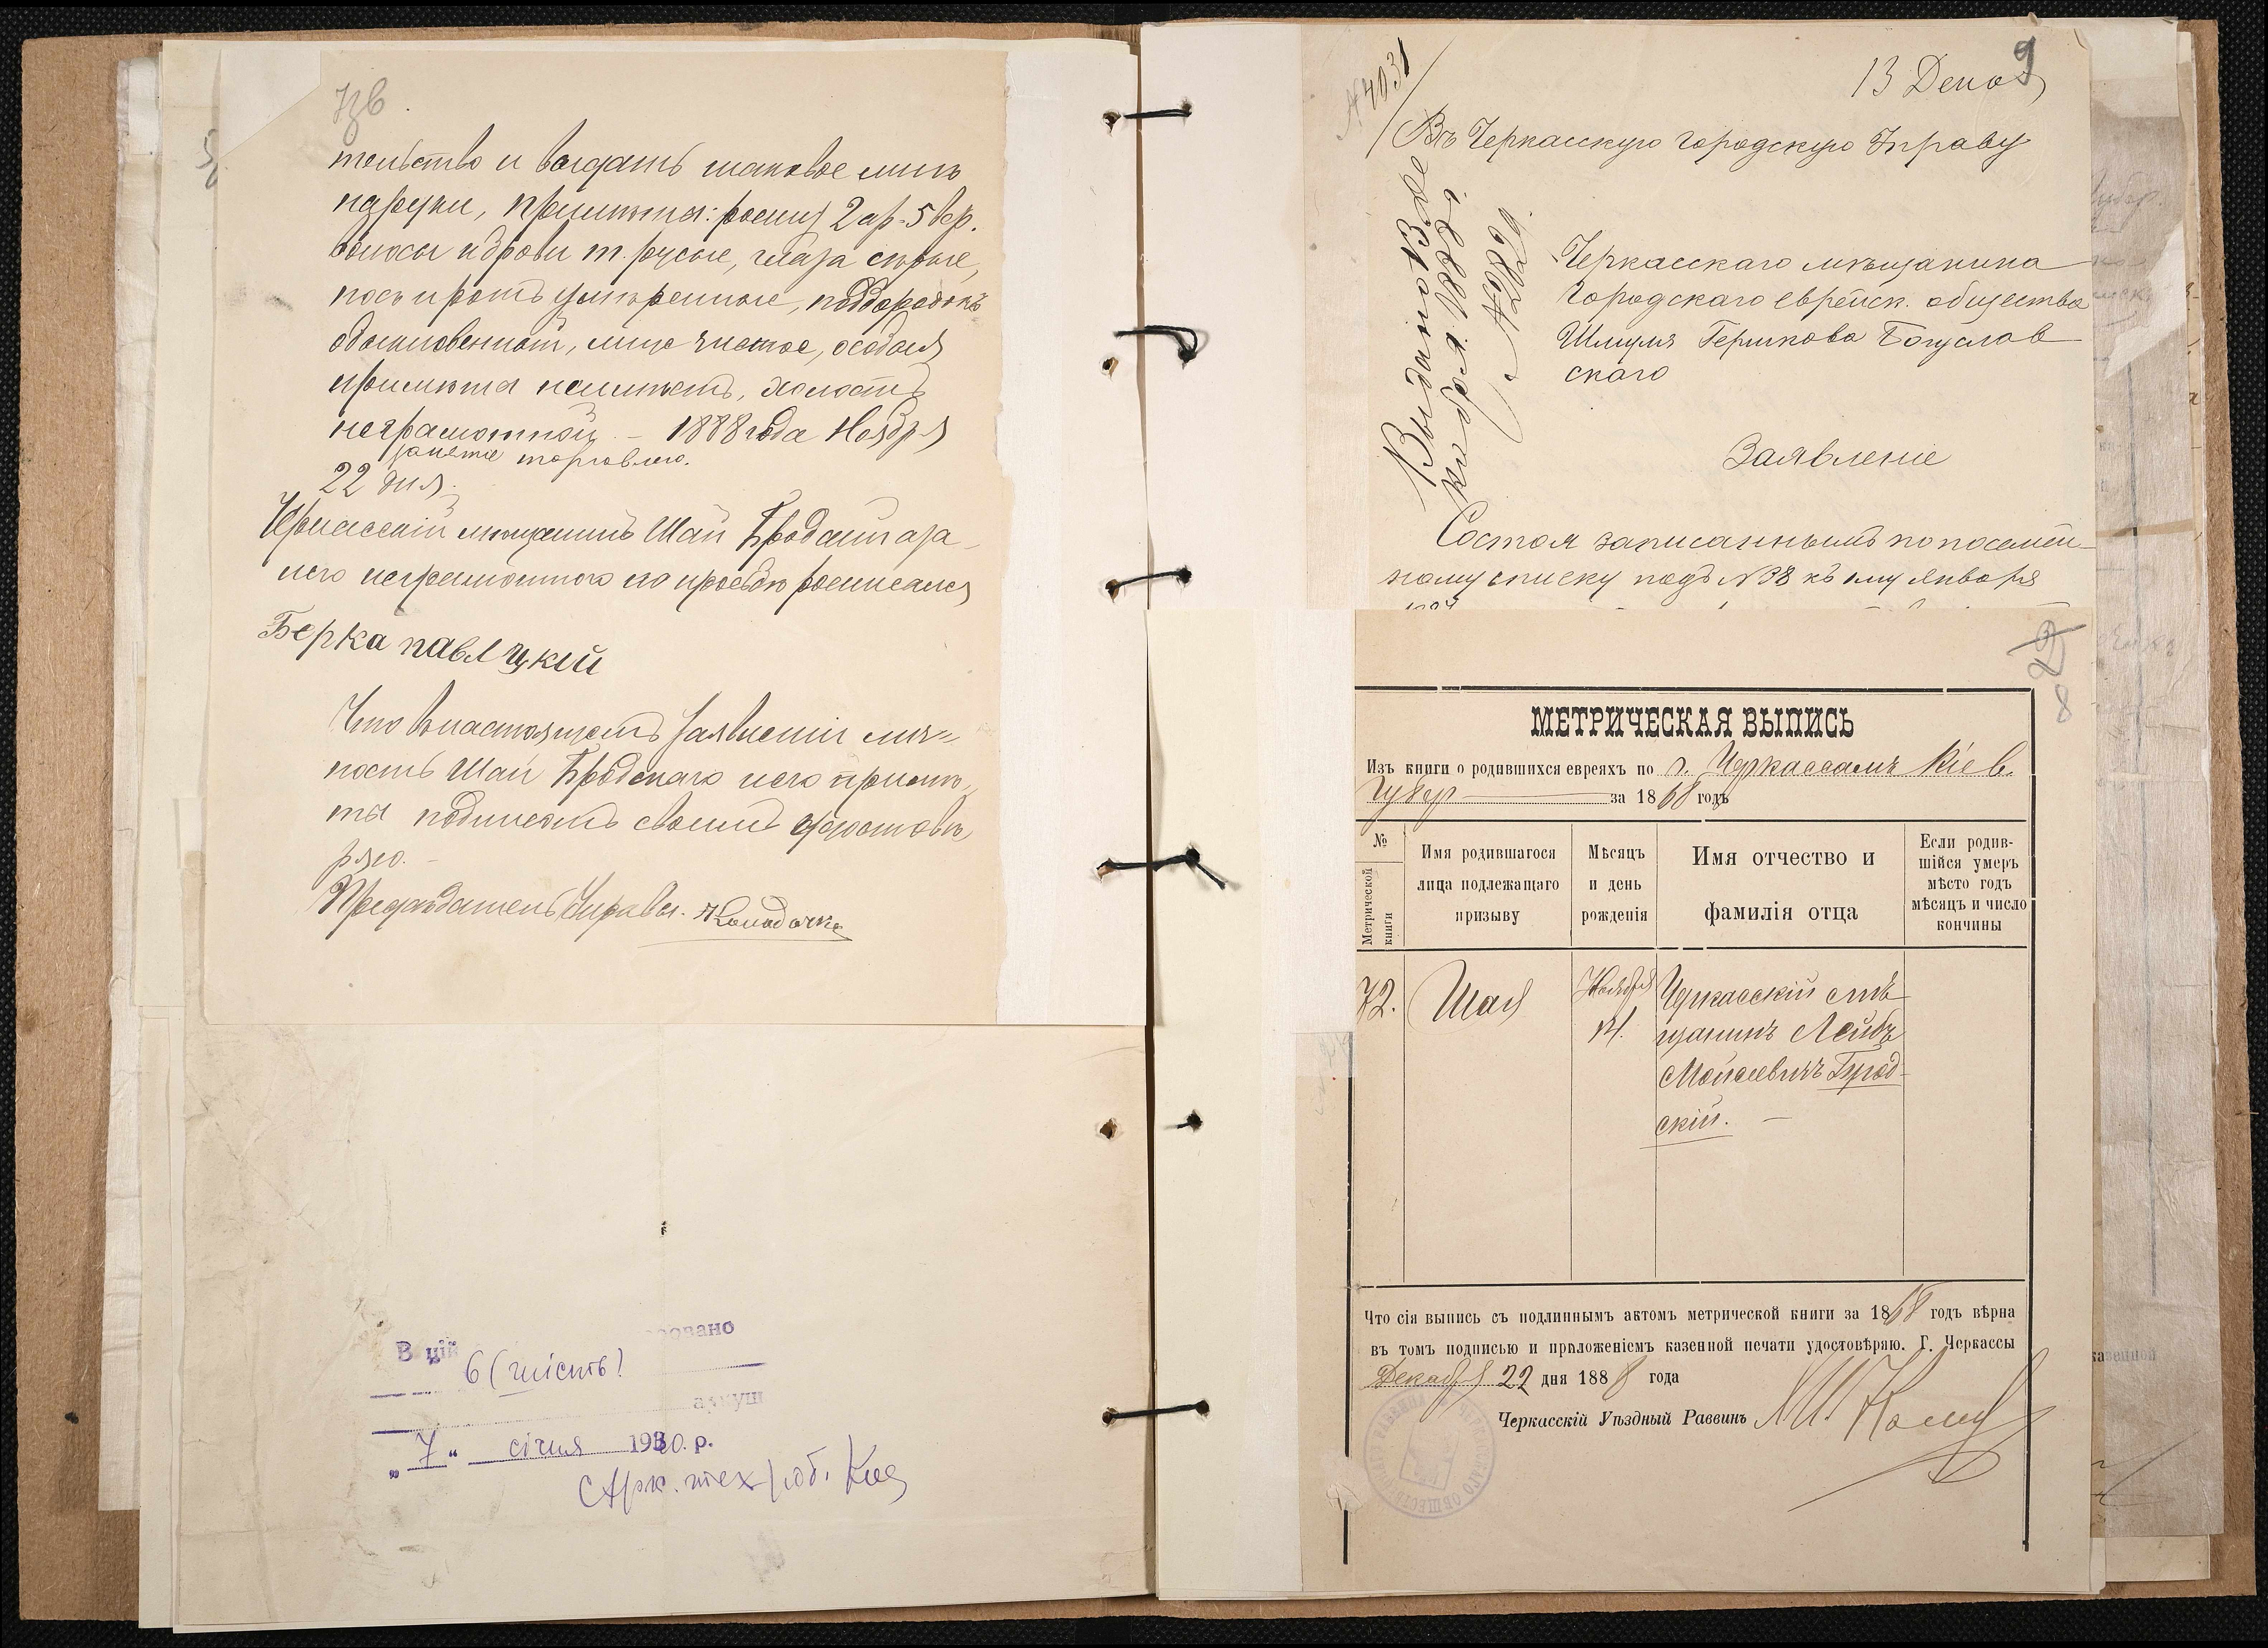 7зв.
тельство и выдать таковое мнѣ
на руки, примѣты: ростъ 2 ар. 5 вер.
волосы и брови т. русые, глаза сѣрые,
носъ и ротъ умѣренные, подбородокъ
обыкновенный, лицо чистое, особыя
примѣты неимѣетъ, холостъ
неграмотный – 1888 года Ноября
занятие торговлею.
22 дня.
Черкасскій мѣщанинъ Шая Бродскій а за
него неграмотного по просьбѣ росписался
Берка павлцкій
Что въ настоящемъ заявленіи лич=
ность Шаи Бродскаго и его примѣ=
ты подписью своею удостовѣ
ряю. –
Предсѣдатель Управы.
В цій
6 (шість)
аркуш
„7“ січня 19 0. р.
Арк. тех роб.
9
13 Дека
№ 4031
Въ Черкасскую Городскую Управу
Выдано В
№ 2829.
Черкасскаго мѣщанина
Городскаго еврейск. общества
Шмуля Гершкова Богуслав
скаго
Заявленіе
Состоя записаннымъ по посемей-
ному списку подъ № 38 къ 1му Января
8
МЕТРИЧЕСКАЯ ВЫПИСЬ
Изъ книги о родившихся евреяхъ по г. Черкассамъ Кіев.
Губер за 1868 годъ
№ Метрической книги
Имя родившагося лица подлежащаго призыву
Мѣсяцъ и день рожденія
Имя отчество и фамилія отца
Если родив- шійся умеръ мѣсто годъ мѣсяцъ и число кончины
72. Шая Ноября 14. Черкасскій мѣ
щанинъ Лейбъ
Мойсеевичъ Брод-
скій. –
Что сія выпись съ подлиннымъ актомъ метрической книги за 1868 годъ вѣрна
въ томъ подписью и приложеніемъ казенной печати удостовѣряю. Г. Черкассы
Декабря 22 дня 1888 года
Черкасскій Уѣздный Раввинъ